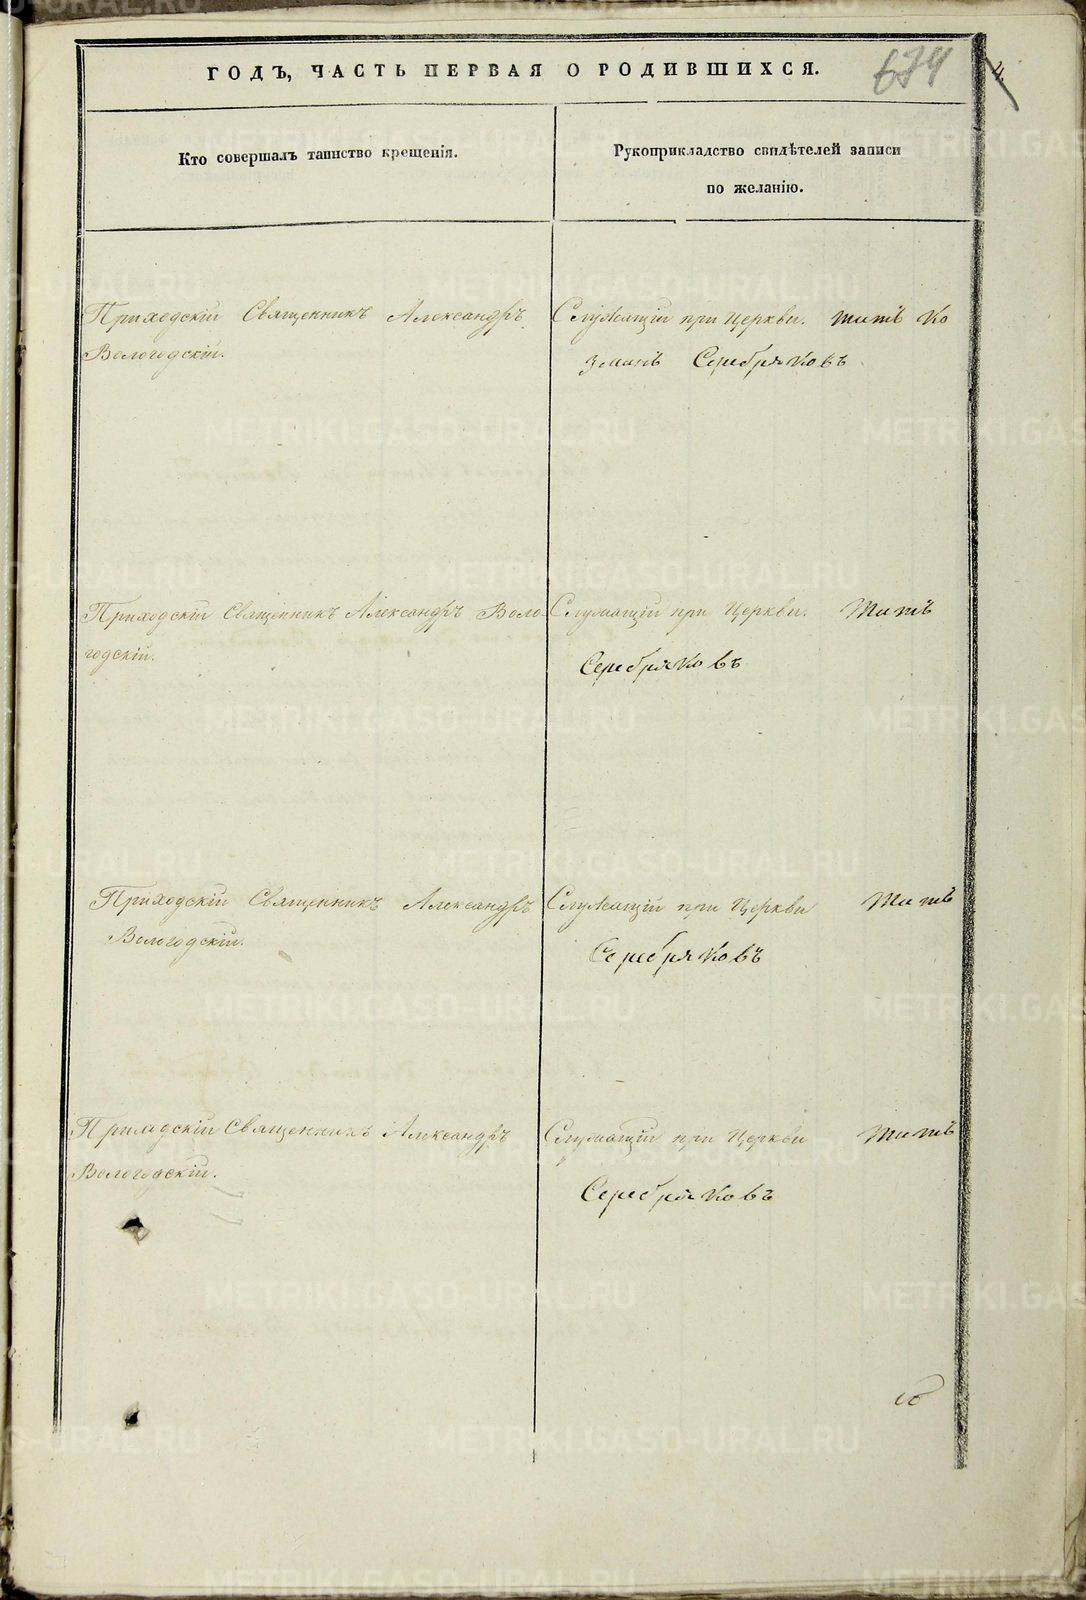 ГОДЪ, ЧАСТЬ ПЕРВАЯ О РОДИВШИХСЯ.
674
4.
Кто совершалъ таинство крещенія.
Рукоприкладство свидѣтелей записи
по желанію.
Приходскій Священникъ Александръ
Вологодскій.
Служащій при Церкви. Титъ Ко
зминъ Серебряковъ
Приходскій Священникъ Александръ Воло-
годскій.
Служащій при Церкви. Титъ
Серебряковъ
Приходскій Священникъ Александръ
Вологодскій.
Служащій при Церкви Титъ
Серебряковъ
Приходскій Священникъ Александръ
Вологодскій.
Служащій при Церкви Титъ
Серебряковъ
METRIKI.GASO-URAL.RU